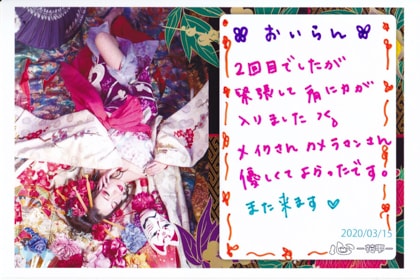 おいらん
2回目でしたが
緊張して肩に力が
入りました
メイクさん カメラマンさん
優しくてよかったです。
また来ます♡
2020/03/15